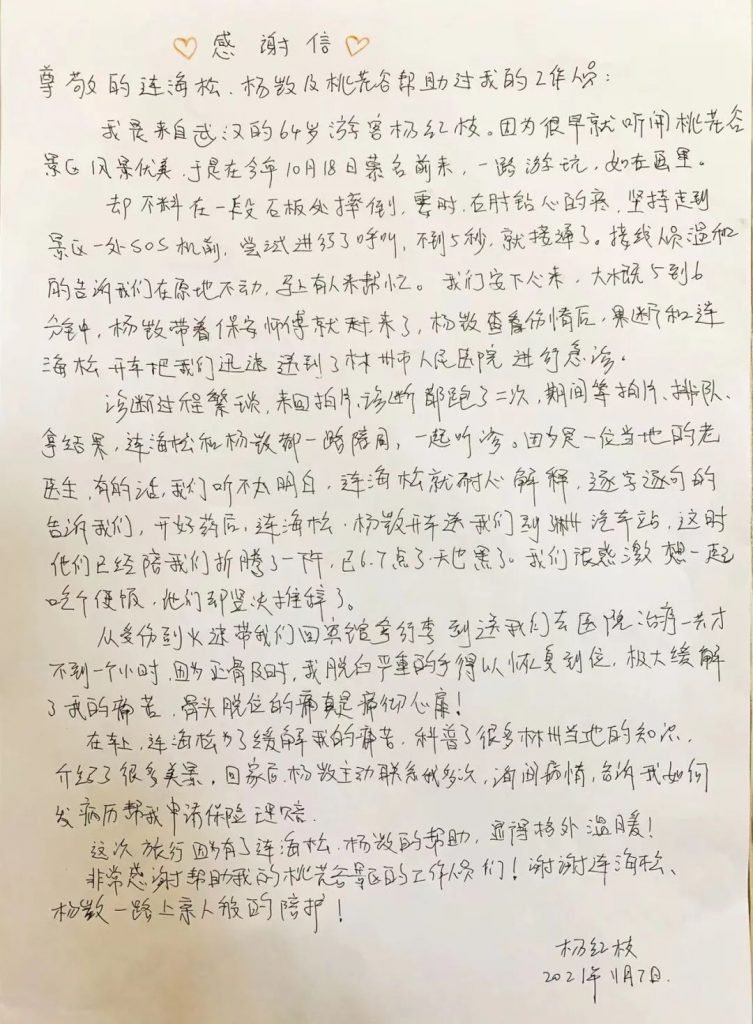 感谢信
尊敬的连海松、杨数及桃花谷帮助过我的工作人员：
我是来自武汉的64岁游客杨红枝。因为很早就听闻桃花谷
景区风景优美，于是在今年10月18日慕名前来，一路游玩，如在画里。
却不料在一段石板处摔倒，霎时，右肘钻心的疼，坚持走到
景区一处SOS机前，尝试进行了呼叫，不到5秒，就接通了。接线员温和
的告诉我们在原地不动，马上有人来帮忙。我们安下心来，大概5到6
分钟，杨数带着保安师傅就赶来了，杨数查看伤情后，果断和连
海松开车把我们迅速送到了林州市人民医院进行急诊。
诊断过程繁琐，来回拍片、诊断都跑了二次，期间等拍片、排队、
拿结果，连海松和杨数都一路陪同，一起听诊。因为是一位当地的老
医生，有的话，我们听不太明白，连海松就耐心解释，逐字逐句的
告诉我们，开好药后，连海松、杨数开车送我们到林州汽车站，这时
他们已经陪我们折腾了一下午，已6.7点了天也黑了。我们很感激想一起
吃个便饭，他们却坚决推辞了。
从受伤到火速带我们回宾馆拿行李到送我们去医院治疗一共才
不到一个小时，因为正骨及时，我脱臼严重的手得以恢复到位，极大缓解
了我的痛苦，骨头脱位的痛真是痛彻心扉！
在车上，连海松为了缓解我的痛苦，科普了很多林州当地的知识，
介绍了很多美景，回家后，杨数主动联系我多次，询问病情，告诉我如何
发病历帮我申请保险理赔.
这次旅行因为有了连海松、杨数的帮助，显得格外温暖！
非常感谢帮助我的桃花谷景区的工作人员们！谢谢连海松、
杨数一路上亲人般的陪护！
杨红枝
2021年11月7日.